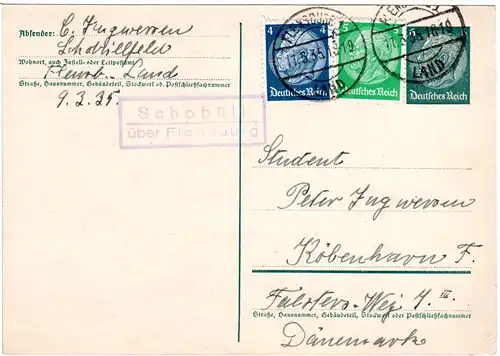 Absender: C. Ingwersen
Schobüllfeld
Wohnort, auch Zustell- oder Leitpostamt
Flensb.-Land
Straße, Hausnummer, Gebäudeteil, Stockwerk od. Postschließfachnummer
9.3.35.
Schobüll
über Flensburg
4
5
6
Deutsches Reich
Deutsches Reich
Deutsches Reich
LAND
Student
Peter Ingwersen
København F.
Falsters-Vej 4 III.
Straße, Hausnummer, Gebäudeteil, Stockwerk oder Postschließfachnummer
Dänemark